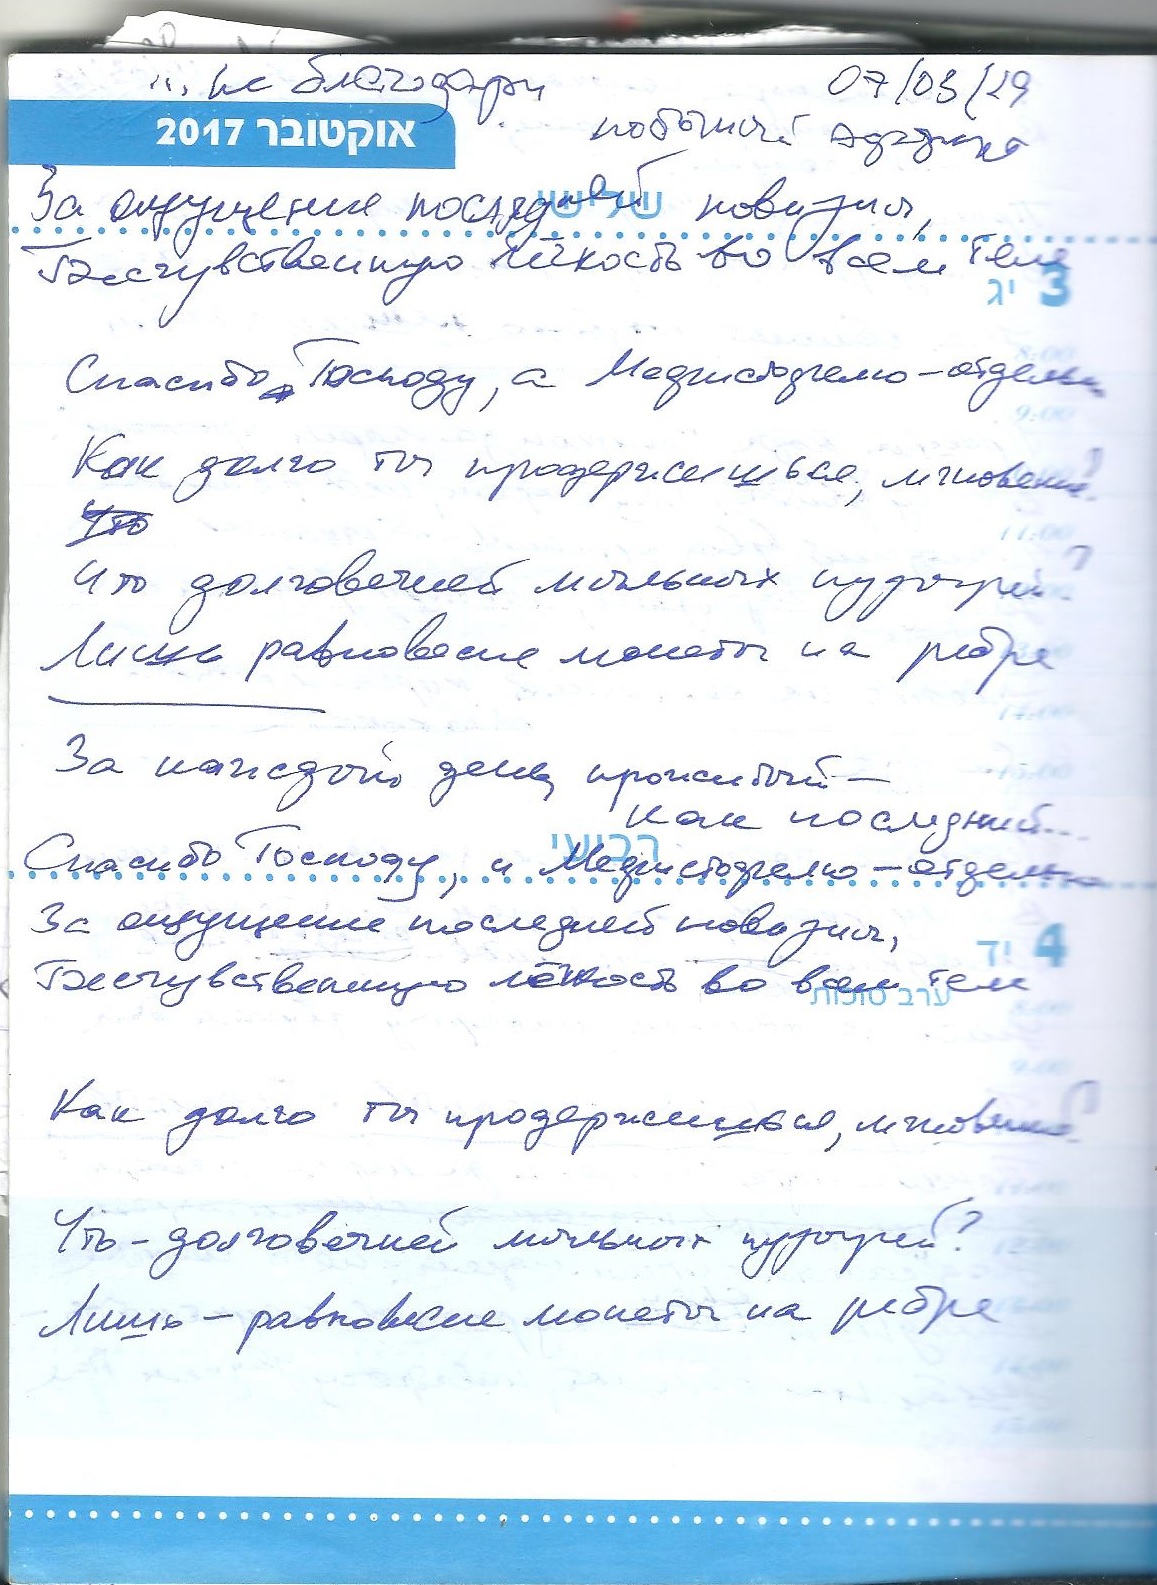 не благодари 07/03/19
אוקטובר 2017
побочный
שלישי
За ощущение последней новизны,
Бесчувственную лёгкость во всем теле
3 יג
8:00
Спасибо Господу, а Медистодрелю-отдельн
9:00
Как долго ты продержишься, мгновение?
Что
11:00
Что долговечней мыльных пузырей?
Лишь равновесие монеты на ребре
14:00
За каждый день, прожитый —
как последний...
רביעי
Спасибо Господу, и Медистодрелю – отдельно
За ощущение последней новизны,
4 יד
Бесчувственную лёгкость во всем теле
ערב סוכות
8:00
9:00
Как долго ты продержишься, мгновение?
Что – долговечней мыльных пузырей?
12:00
Лишь – равновесие монеты на ребре